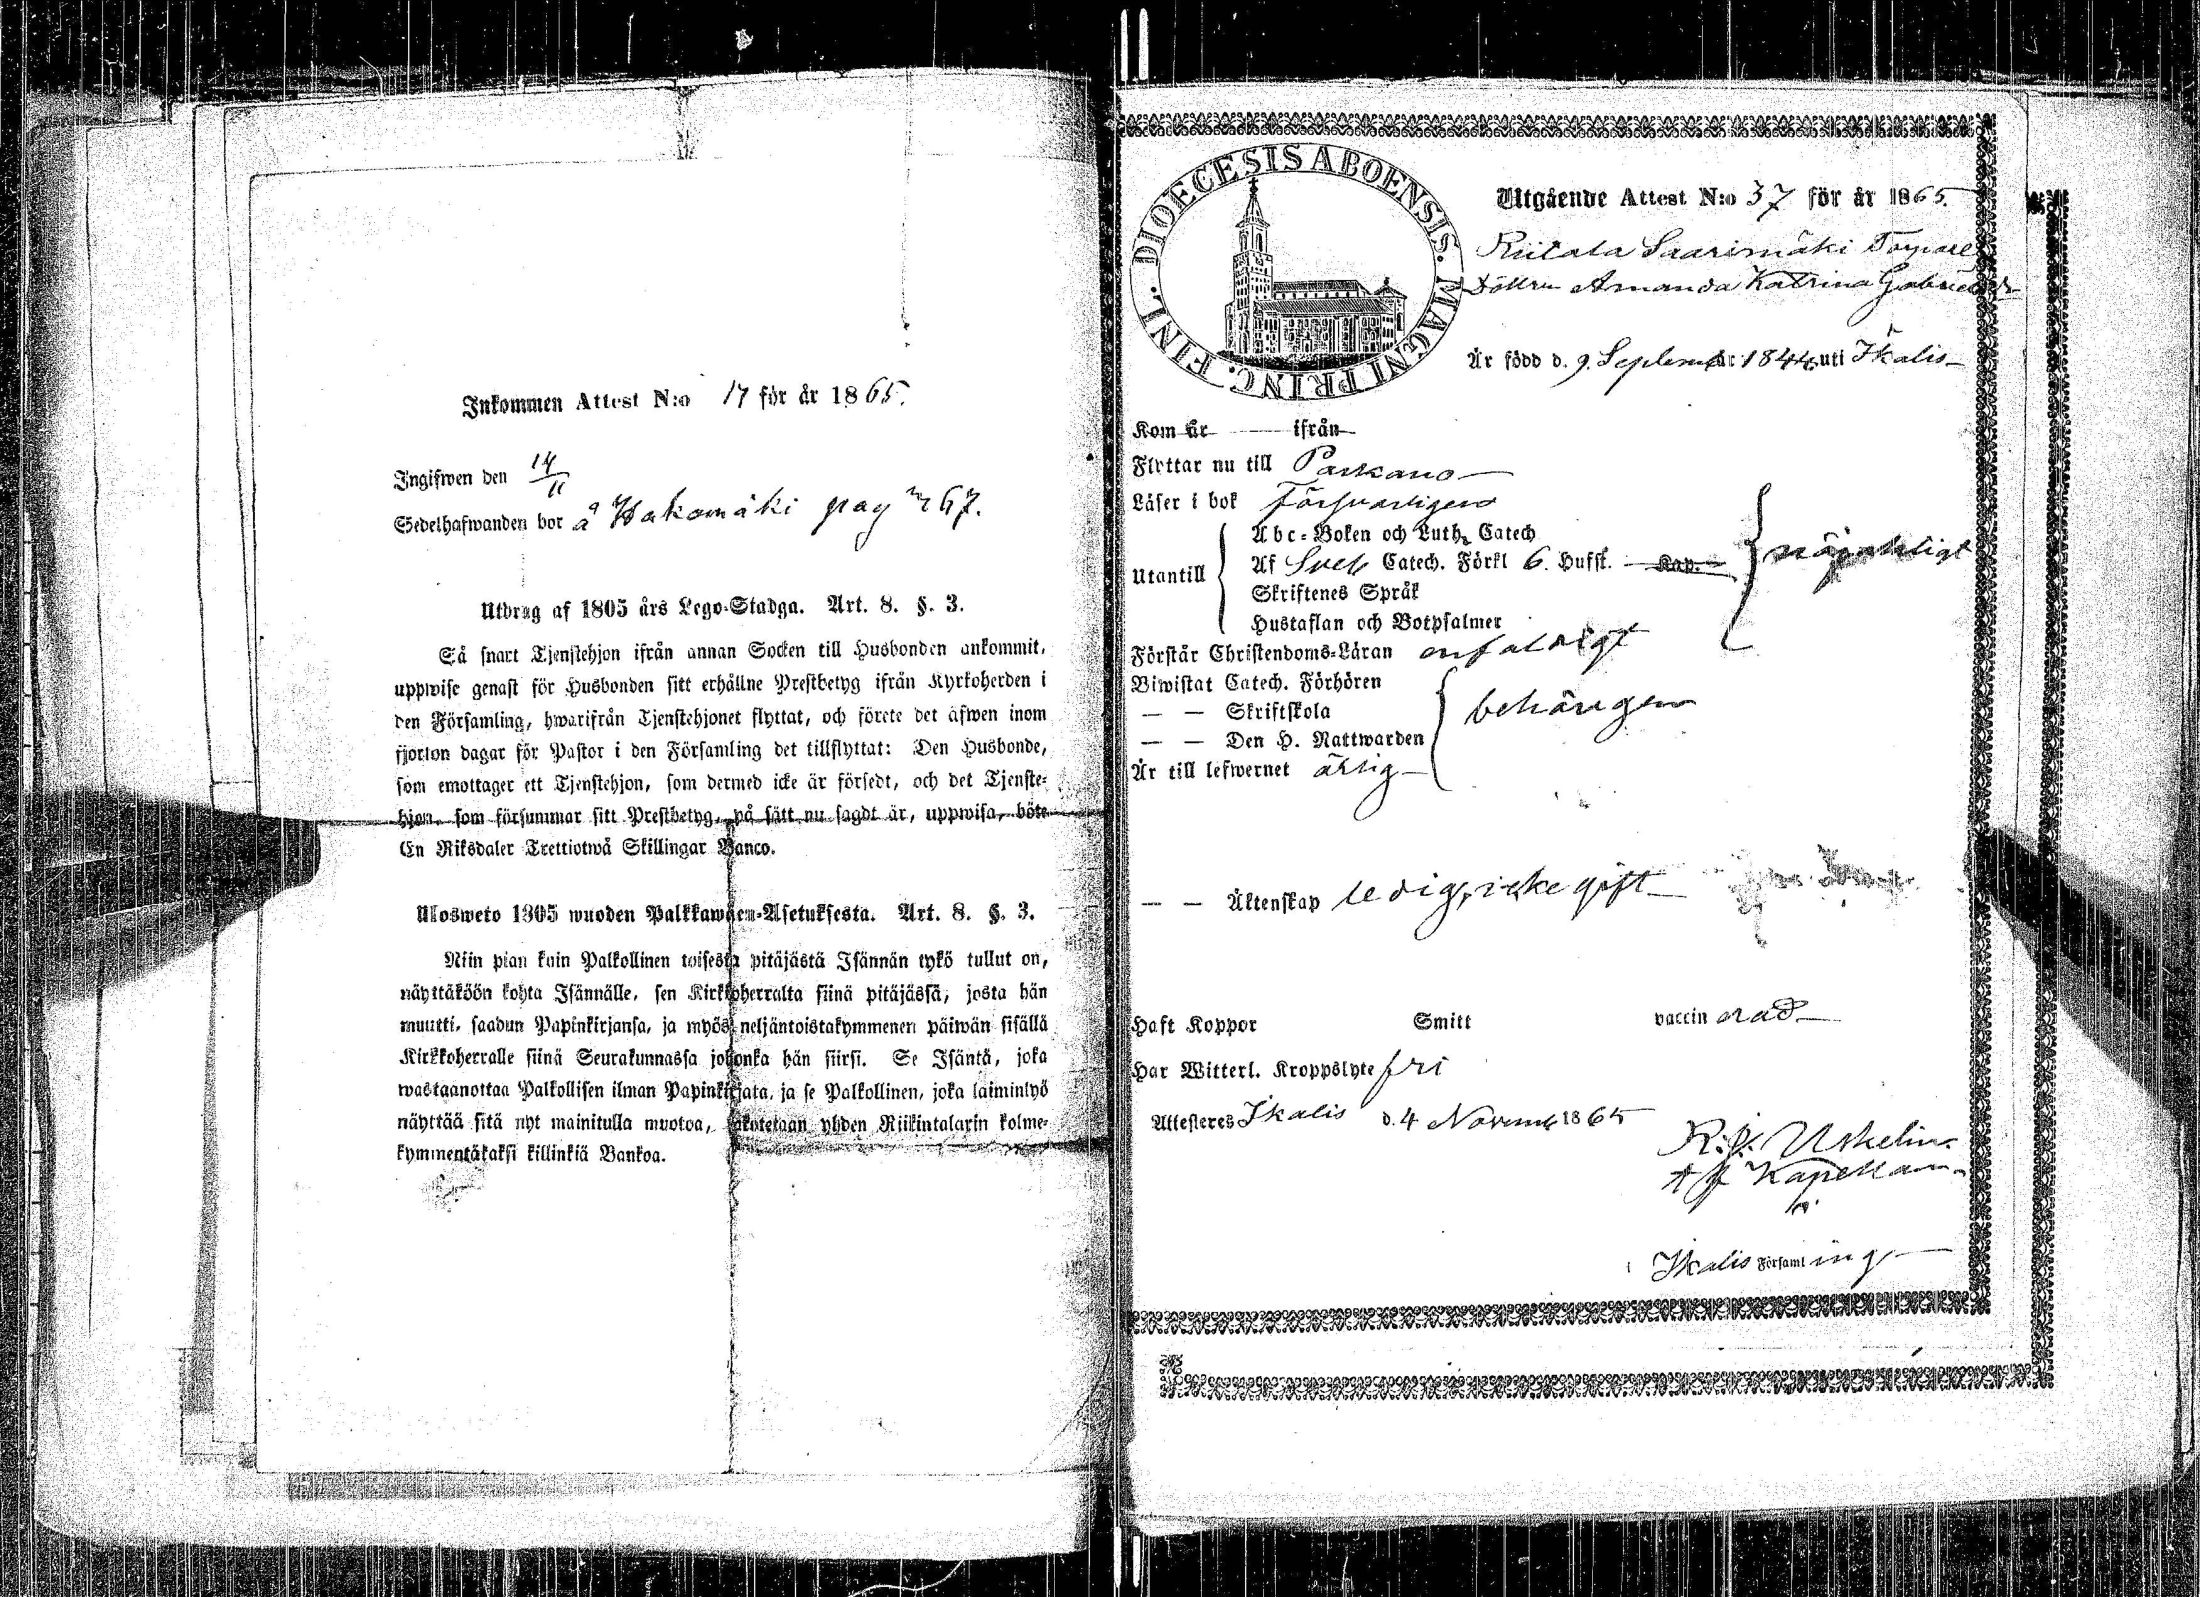 Inkommen Attest N:o 17 för år 1865.
Ingifwen den 14/11
Sedelhafwanden bor å Hakomäki pag 67.
Utdrag af 1805 års Lego-Stadga. Art. 8. §. 3.
Så snart Tjenstehjon ifrån annan Socken till Husbonden ankommit,
uppwise genast för Husbonden sitt erhållne Prestbetyg ifrån Kyrkoherden i
den Församling, hwarifrån Tjenstehjonet flyttat, och förete det äfwen inom
fjorton dagar för Pastor i den Församling det tillflyttat: Den Husbonde,
som emottager ett Tjenstehjon, som dermed icke är försedt, och det Tjenste-
hjon, som försummar sitt Prestbetyg, på sätt nu sagdt är, uppwisa, böte
En Riksdaler Trettiotwå Skillingar Banco.
Ulosweto 1805 wuoden Palkkawäen-Asetuksesta. Art. 8. §. 3.
Niin pian kuin Palkollinen toisesta pitäjästä Isännän tykö tullut on,
näyttäköön kohta Isännälle, sen Kirkkoherralta siinä pitäjässä, josta hän
muutti, saadun Papinkirjansa, ja myös neljäntoistakymmenen päiwän sisällä
Kirkkoherralle siinä Seurakunnassa johonka hän siirsi. Se Isäntä, joka
wastaanottaa Palkollisen ilman Papinkirjata, ja se Palkollinen, joka laiminlyö
näyttää sitä nyt mainitulla muotoa, sakotetaan yhden Riikintalarin kolme-
kymmentäkaksi killinkiä Bankoa.
DIOECESIS ABOENSIS. MAGNI PRINC. FINL.
Utgående Attest N:o 37 för år 1865.
Riitala Saarimäki Torpare
Dottren Amanda Katrina Gabrielsdr
Är född d. 9 September 1844 uti Ikalis
Kom år ifrån
Flyttar nu till Parkano
Läser i bok Försvarligen
Utantill
Abc-Boken och Luth. Catech
Af Sveb Catech. Förkl 6. Hufst. Kap.
Skriftenes Språk
Hustaflan och Botpsalmer
nöjaktligt
Förstår Christendoms-Läran enfaldigt
Biwistat Catech. Förhören
— — Skriftskola
— — Den H. Nattwarden
behörigen
Är till lefwernet ärlig
— — Äktenskap ledig, icke gift
Haft Koppor Smitt vaccinerad
Har Witterl. Kroppslyte fri
Attesteres Ikalis d. 4 Novemb 1865
Kapellan
Ikalis Församling